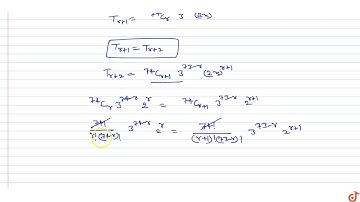 T_{r+1} = ^{74}C_r 3 (2x)
T_{r+1} = T_{r+2}
T_{r+2} = ^{74}C_{r+1} 3^{73-r} (2x)^{r+1}
^{74}C_r 3^{74-r} 2^r = ^{74}C_{r+1} 3^{73-r} 2^{r+1}
74!/(r!(74-r)!) 3^{74-r} 2^r = 74!/((r+1)!(73-r)!) 3^{73-r} 2^{r+1}